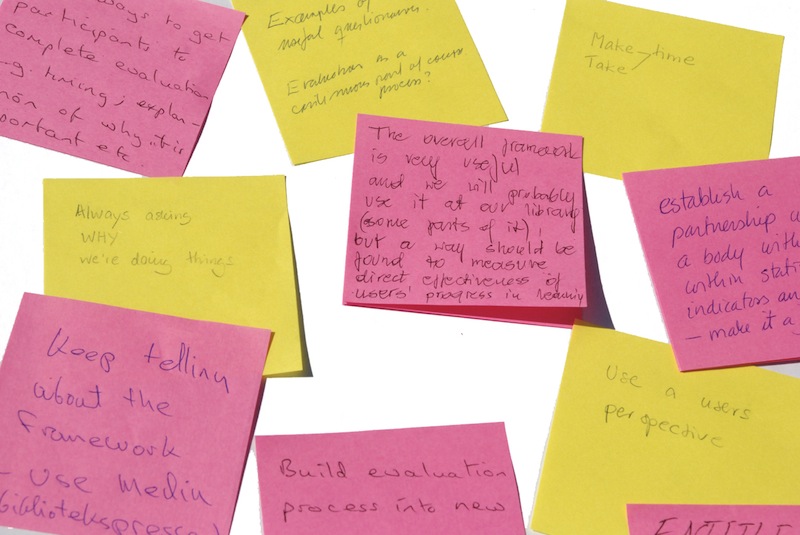 ways to get
participants to
complete evaluation
timing; explan-
of why it is
portant etc.
Examples of
useful questionnaires.
+
Evaluation as a
continuous part of course
process?
Make
Take time
The overall framework
is very useful
and we will probably
use it at our library
(some parts of it),
but a way should be
found to measure
direct effectiveness of
users' progress in
establish a
partnership w
a body with
within stati
indicators an
- make it a
Always asking
WHY
we're doing things
Keep telling
about the
Framework
- Use Medin
biblioteks
Build evaluation
process into new
Use a users
perspective
ENTITLE